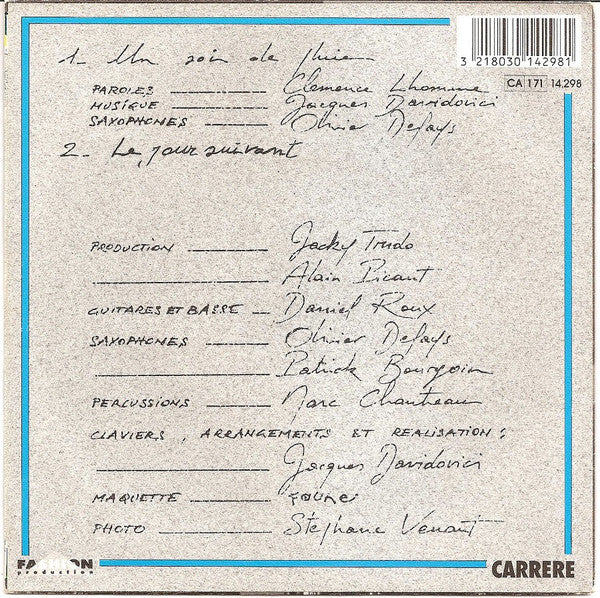 1. Un soir de pluie
3 218030 142981
CA 171 14.298
PAROLES Clemence Lhomme
MUSIQUE Jacques Davidovici
SAXOPHONES Olivier Defays
2. Le jour suivant
PRODUCTION Jacky Trudo
Alain Picaut
GUITARES ET BASSE Daniel Roux
SAXOPHONES Olivier Defays
Patrick Bourgoin
PERCUSSIONS Marc Chantereau
CLAVIERS, ARRANGEMENTS ET REALISATION:
Jacques Davidovici
MAQUETTE
PHOTO Stéphane
production
CARRERE